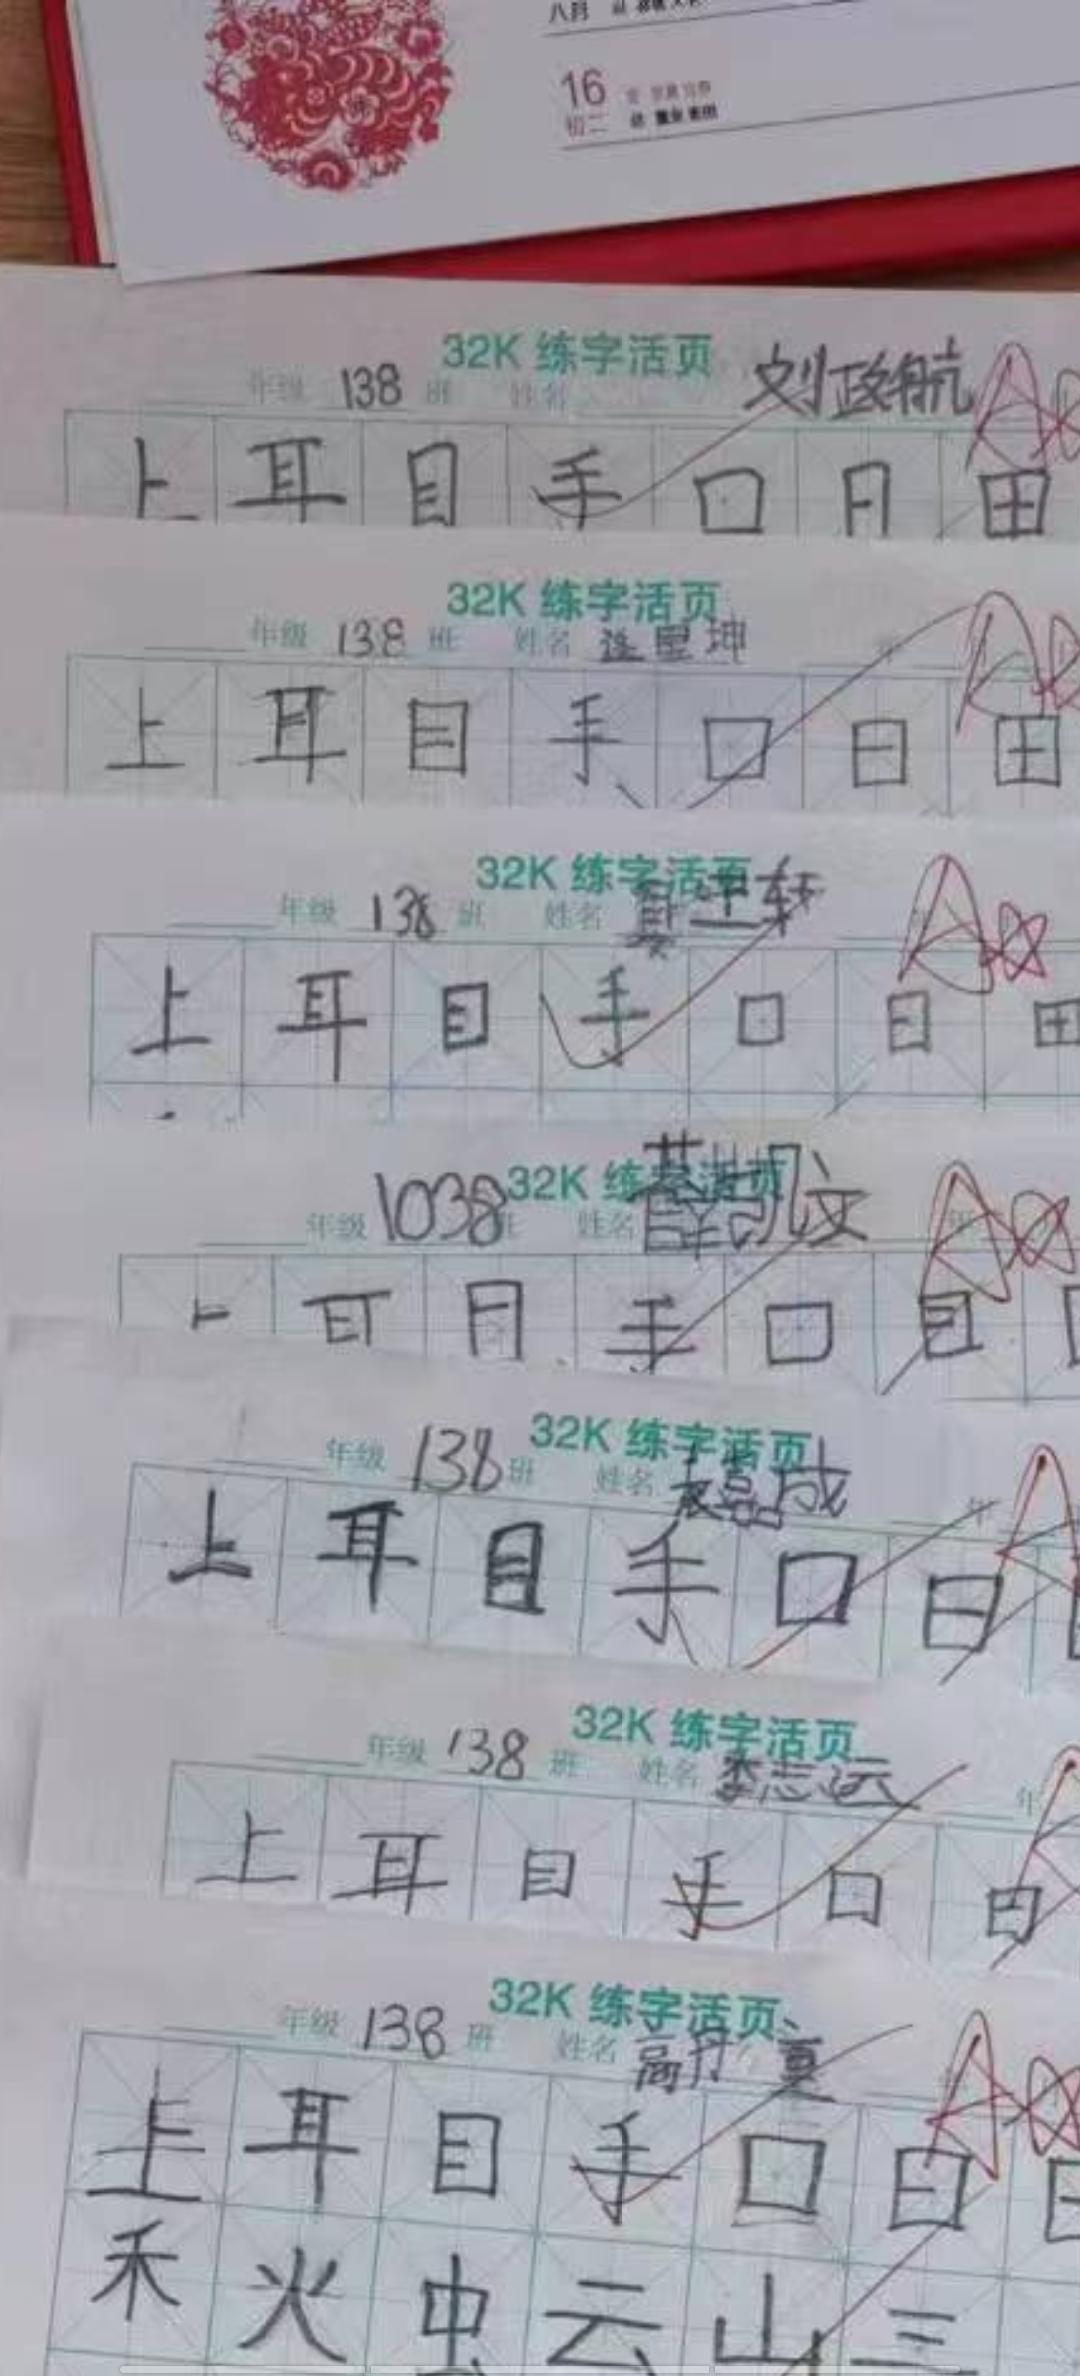 16
初二
32K 练字活页
年级 138 班 姓名 刘政航
上 耳 目 手 口 月 田
32K 练字活页
年级 138 班 姓名 坤 年
上 耳 目 手 口 日 田
32K 练字活页
年级 138 班 姓名 轩
上 耳 目 手 口 日 田
32K 练字活页
年级 1038 班 姓名 薛凯文
上 耳 月 手 口 目
32K 练字活页
年级 138 班 姓名 成 年
上 耳 目 手 口 日
32K 练字活页
年级 138 班 姓名 李志远 年
上 耳 目 手 口 日
32K 练字活页
年级 138 班 姓名 高丹 夏
上 耳 目 手 口 日
禾 火 虫 云 山 三